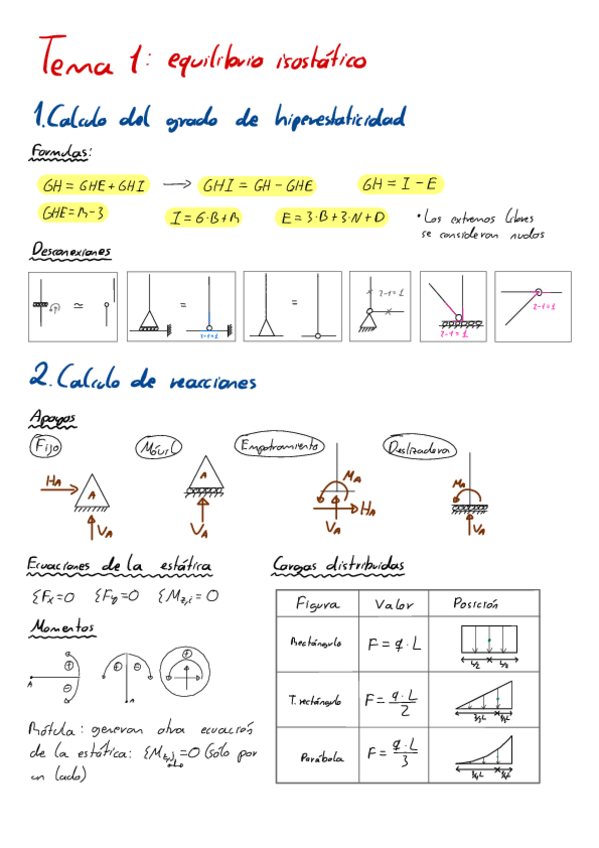 Tema 1: equilibrio isostático
1. Calculo del grado de hiperestaticidad
Formulas:
GH = GHE + GHI → GHI = GH - GHE GH = I - E
GHE = R - 3 I = 6·B + R E = 3·B + 3·N + D • Los extremos libres
se consideran nudos
Desconexiones
≃ = = 2-1=1
2-1=1 2-1=1 2-1=1
2. Calculo de reacciones
Apoyos
Fijo Móvil Empotramiento Deslizadera
HA A VA
A VA
MA HA VA
MA VA
Ecuaciones de la estática
ΣFx=0 ΣFy=0 ΣMz,i=0
Momentos
A A
Rótula: generan otra ecuación
de la estática: =0 (sólo por
un lado)
Cargas distribuidas
Figura Valor Posición
Rectángulo F = q·L L/2 L/2
T. rectángulo F = q·L/2 2/3L 1/3L
Parábola F = q·L/3 3/4L 1/4L